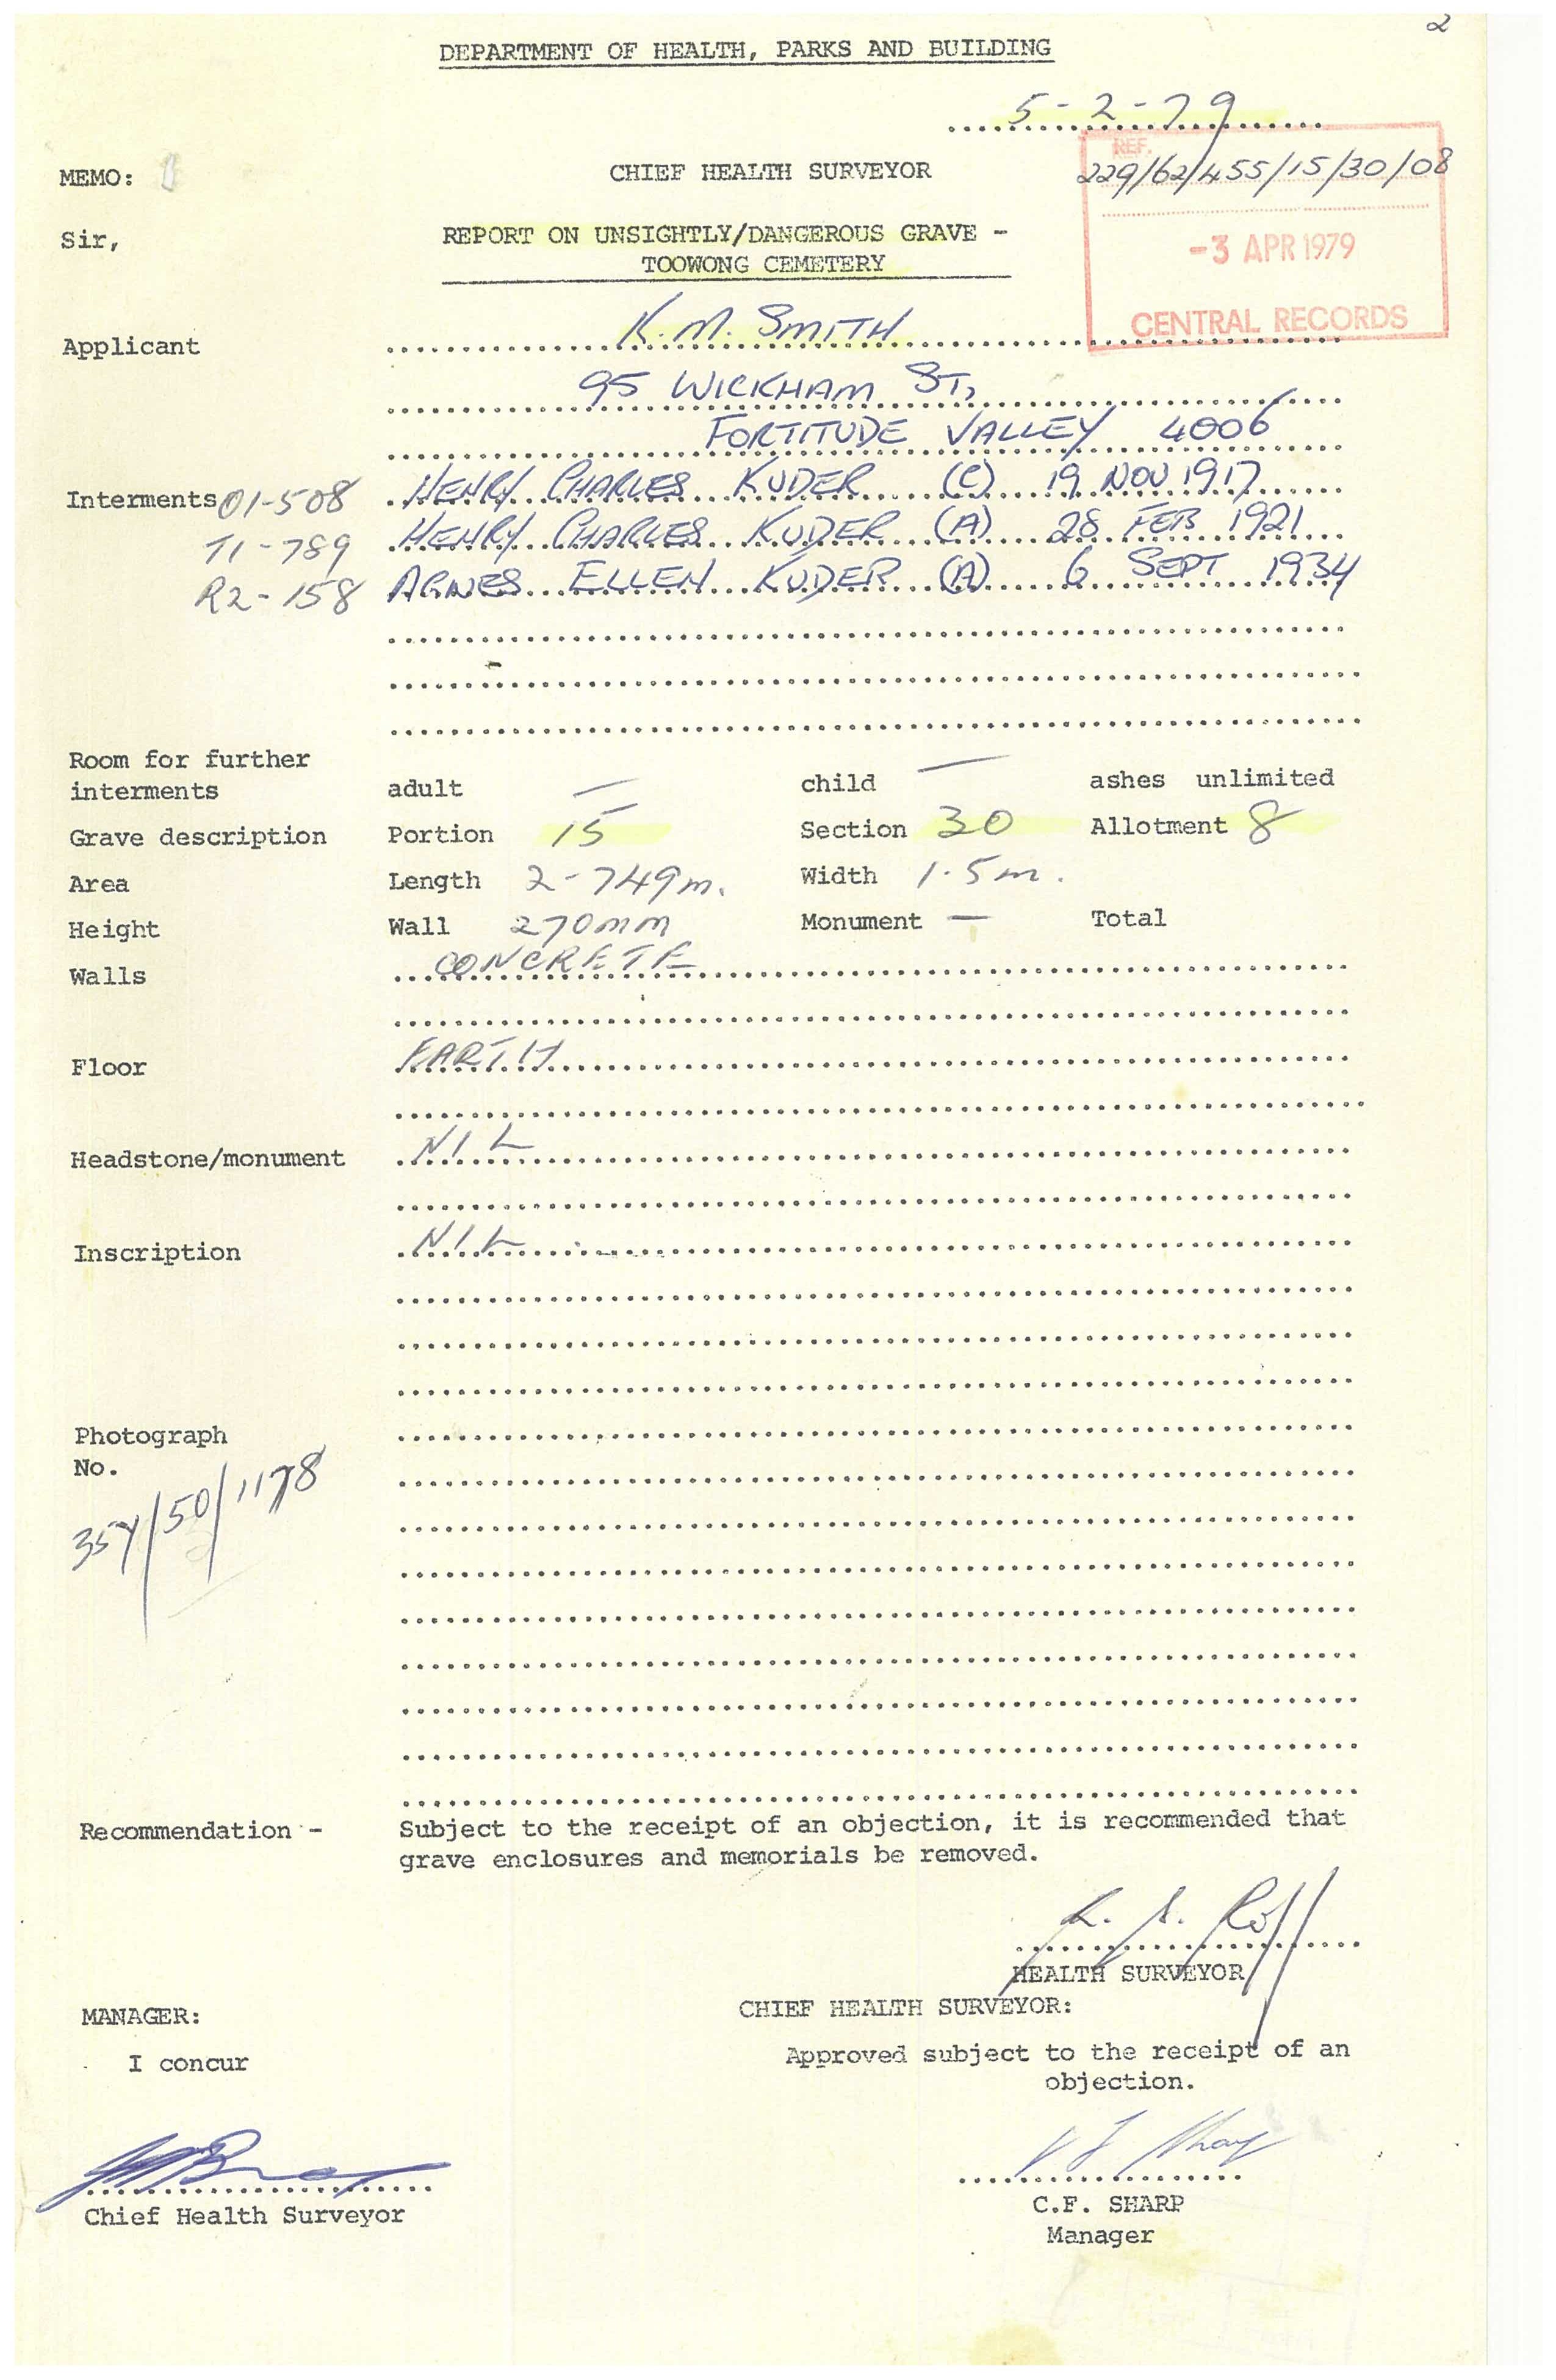 2
DEPARTMENT OF HEALTH, PARKS AND BUILDING
5-2-79
MEMO:
CHIEF HEALTH SURVEYOR
REF.
229/62/455/15/30/08
Sir,
REPORT ON UNSIGHTLY/DANGEROUS GRAVE -
TOOWONG CEMETERY
-3 APR 1979
CENTRAL RECORDS
Applicant K.M. SMITH
95 WICKHAM ST,
FORTITUDE VALLEY 4006
Interments 01-508 HENRY CHARLES KUDER (C) 19 NOV 1917
T1-789 HENRY CHARLES KUDER (A) 28 FEB 1921
R2-158 AGNES ELLEN KUDER (A) 6 SEPT 1934
Room for further
interments adult — child — ashes unlimited
Grave description Portion 15 Section 30 Allotment 8
Area Length 2-749m. Width 1.5m.
Height Wall 270mm Monument — Total
Walls CONCRETE
Floor EARTH
Headstone/monument NIL
Inscription NIL
Photograph
No.
/50/1178
Recommendation - Subject to the receipt of an objection, it is recommended that
grave enclosures and memorials be removed.
HEALTH SURVEYOR
MANAGER:
CHIEF HEALTH SURVEYOR:
I concur
Approved subject to the receipt of an
objection.
Chief Health Surveyor
C.F. SHARP
Manager